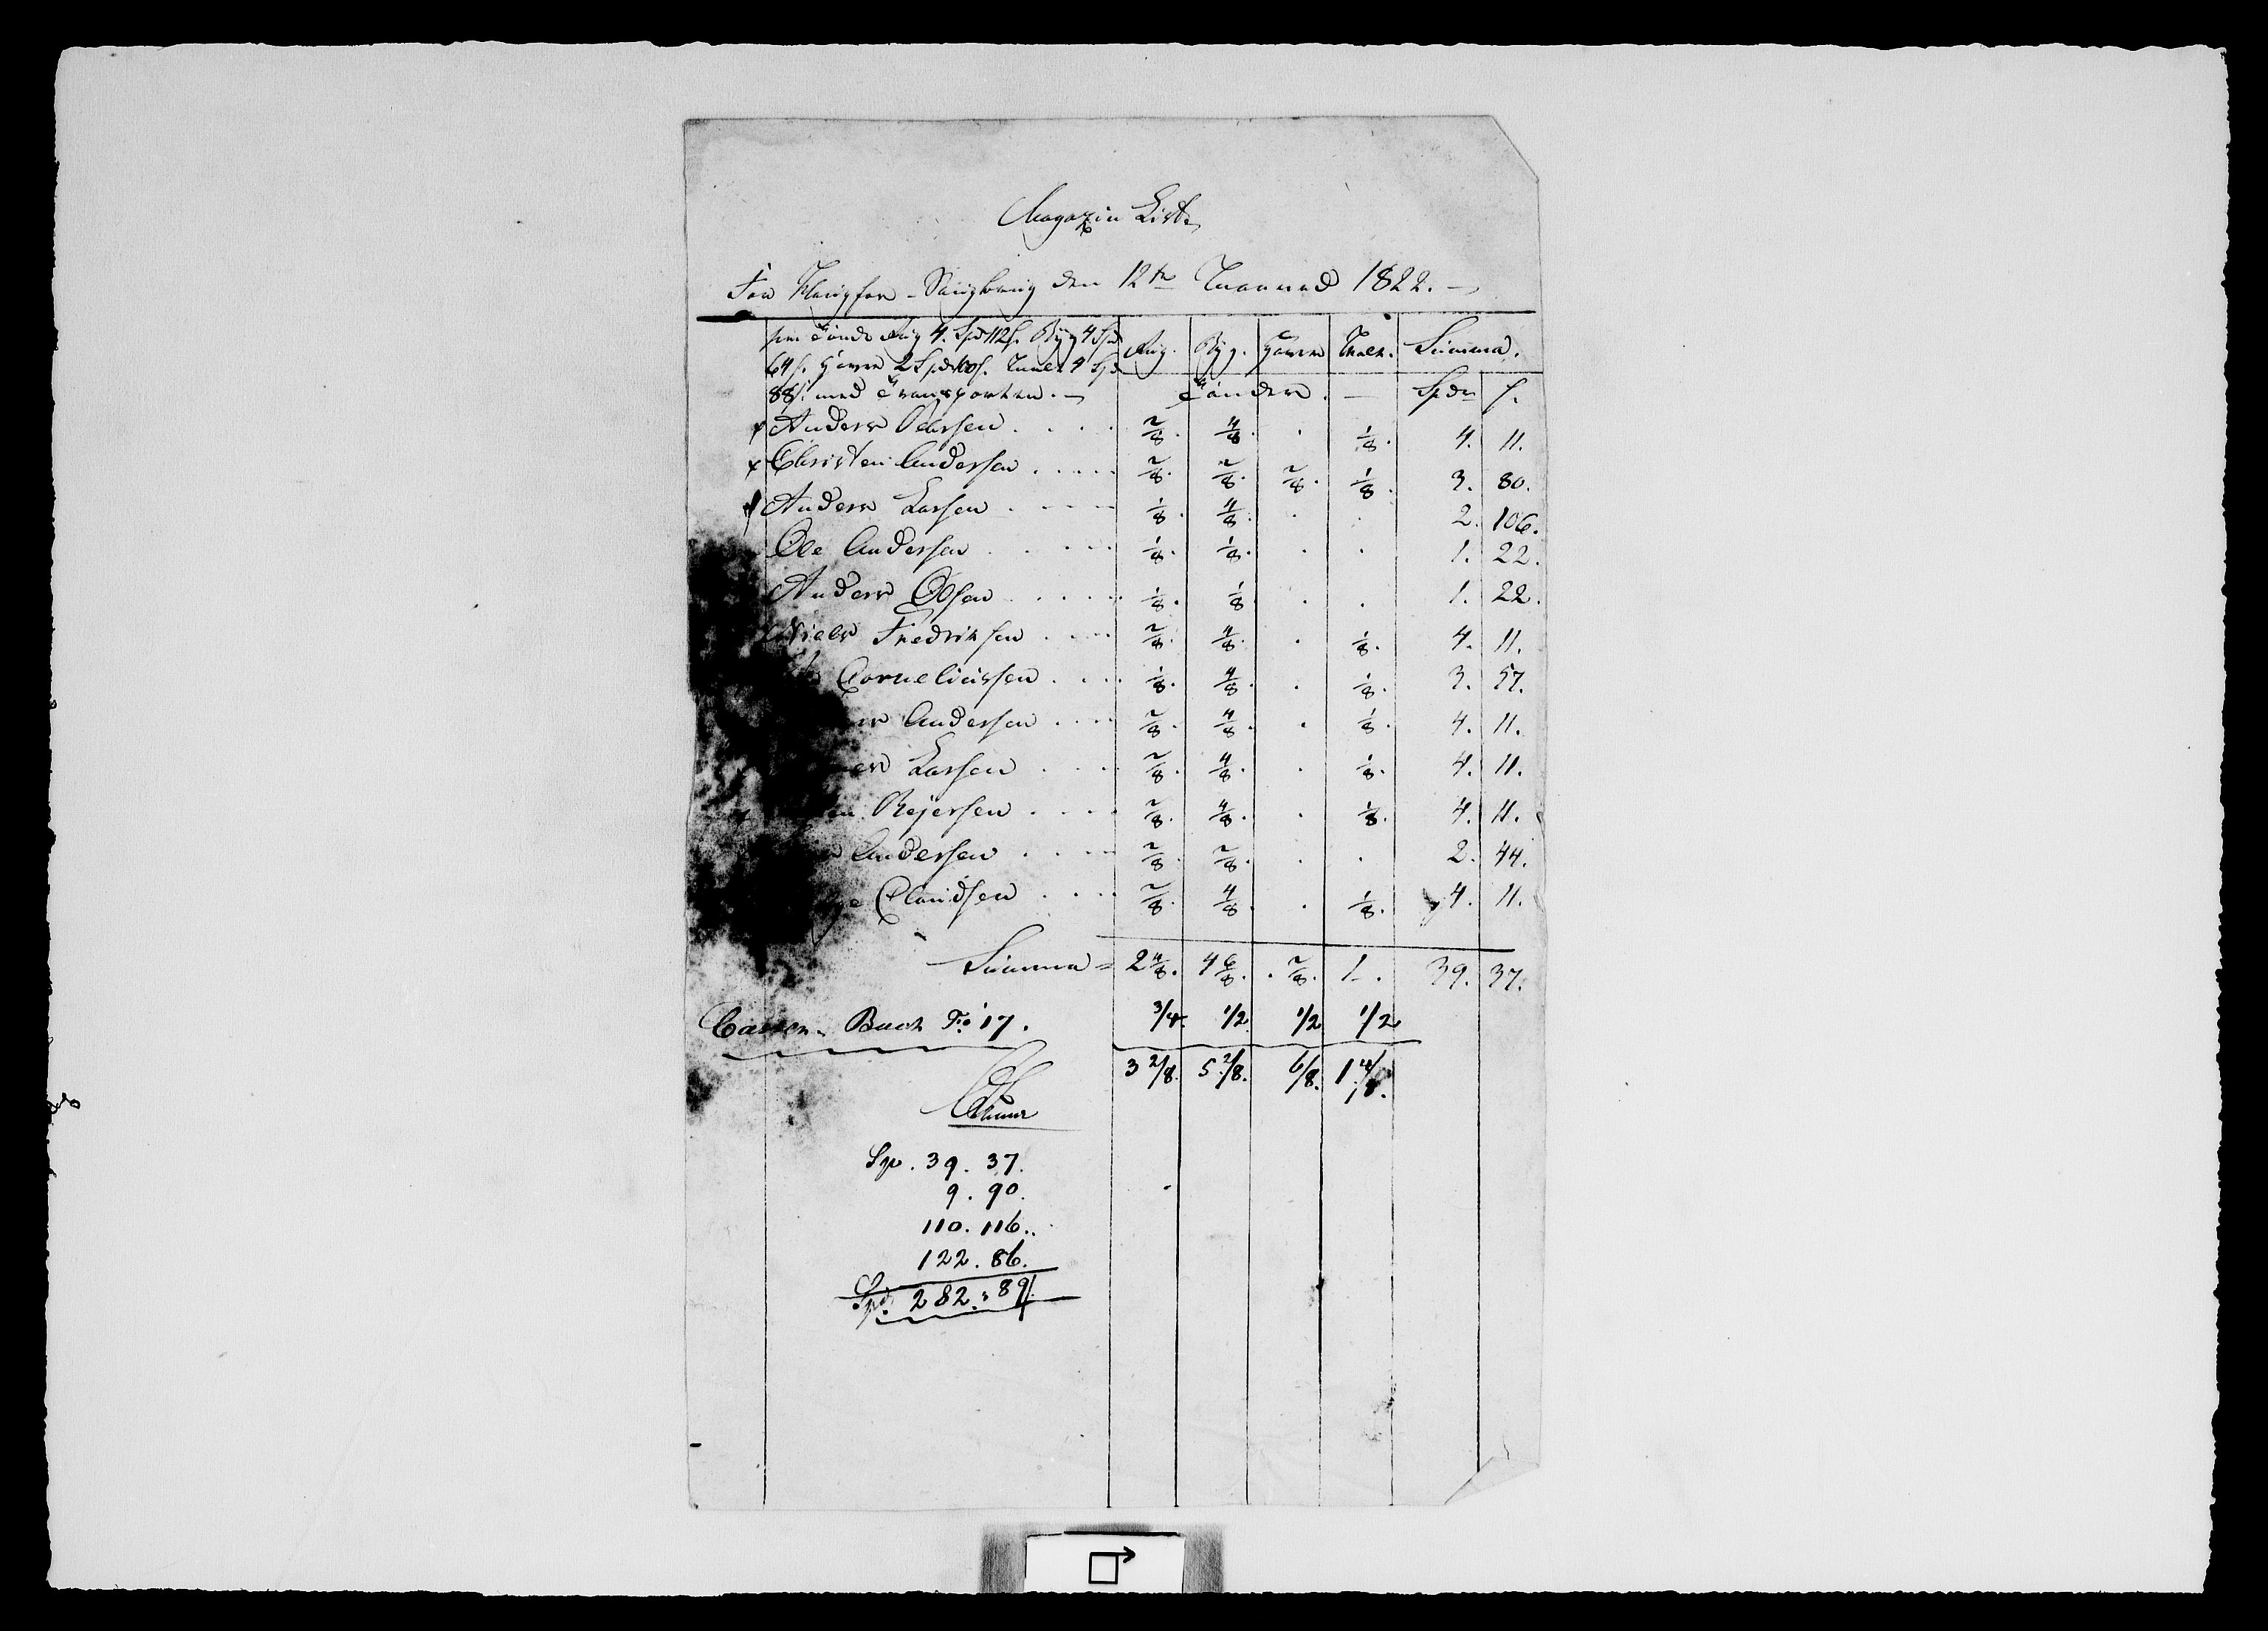 Magazin Liste
For Flougfos-Saugbrug den 12te Maaned 1822.
per Tönde Rug 4. Spd 112 s. Byg 4 Spd
64 s. Havre 2 Spd 100 s. Malt 4 Spd
88 s. med Transporten.
Rug. Byg. Havre Malt. Summa.
Tönder. Spdr s.
Anders Olassen .... 2/8. 4/8. . 1/8. 4. 11.
x Christen Anderssen .... 2/8. 2/8. 2/8. 1/8. 3. 80.
Anders Larssen .... 1/8. 4/8. . . 2. 106.
Ole Anderssen .... 1/8. 1/8. . . 1. 22.
Anders Olssen .... 1/8. 1/8 . . 1. 22.
Niels Fredrikssen .... 2/8. 4/8. . 1/8. 4. 11.
Corneliussen .... 1/8. 4/8. . 1/8. 3. 57.
Anderssen .... 2/8. 4/8. . 1/8. 4. 11.
Larssen .... 2/8. 4/8. . 1/8. 4. 11.
Rejerssen .... 2/8. 4/8. . 1/8. 4. 11.
Anderssen .... 2/8. 2/8. . . 2. 44.
Claudssen .... 2/8. 4/8. . 1/8. 4. 11.
Summa = 2 4/8. 4 6/8. . 2/8. 1. 39. 37.
Casse Buch Fo 17. 3/4. 1/2 1/2 1/2
3 2/8. 5 2/8. 6/8. 1 4/8.
Sp. 39. 37.
9. 90.
110. 116.
122. 86.
Spd. 282. 89.